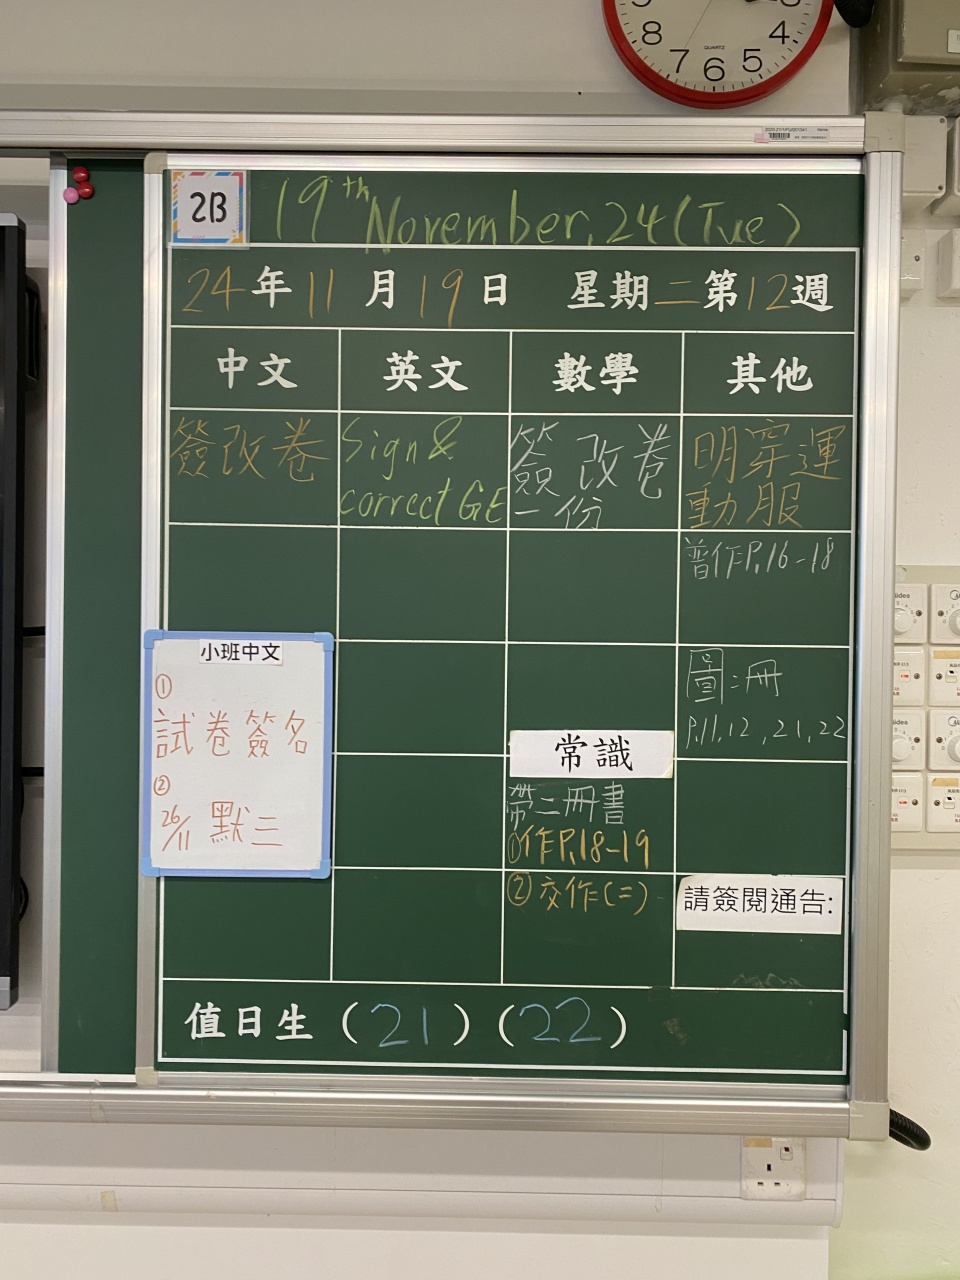 8 7 6 5 4
QUARTZ
2B
19th November, 24 (Tue)
24年11月19日 星期二第12週
中文 英文 數學 其他
簽改卷
Sign &
correct GE
簽改卷
一份
明穿運
動服
普作P.16-18
圖:冊
P.11,12,21,22
小班中文
①
試卷簽名
②
26/11 默三
常識
帶二冊書
①作P.18-19
②交作(二)
請簽閱通告:
值日生(21)(22)